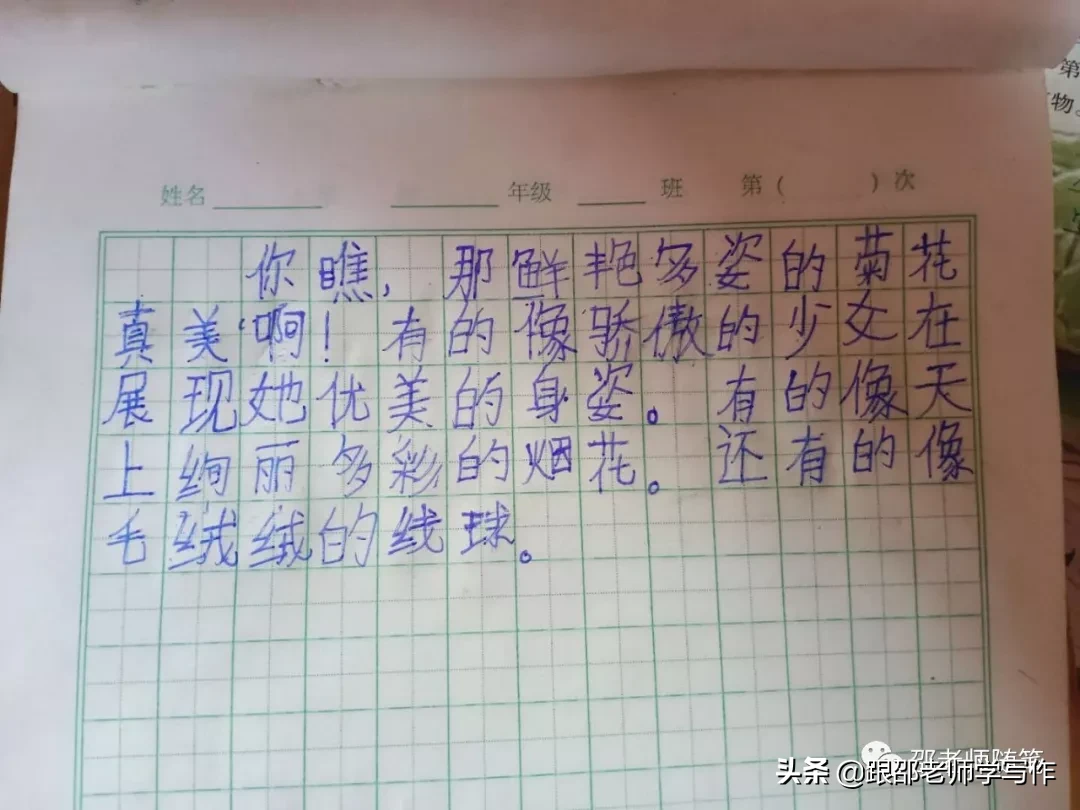 第
物。
姓名 年级 班 第( )次
你瞧,那鲜艳多姿的菊花
真美啊!有的像骄傲的少女在
展现她优美的身姿。有的像天
上绚丽多彩的烟花。还有的像
毛绒绒的线球。
邵老师随笔
头条 @跟邵老师学写作